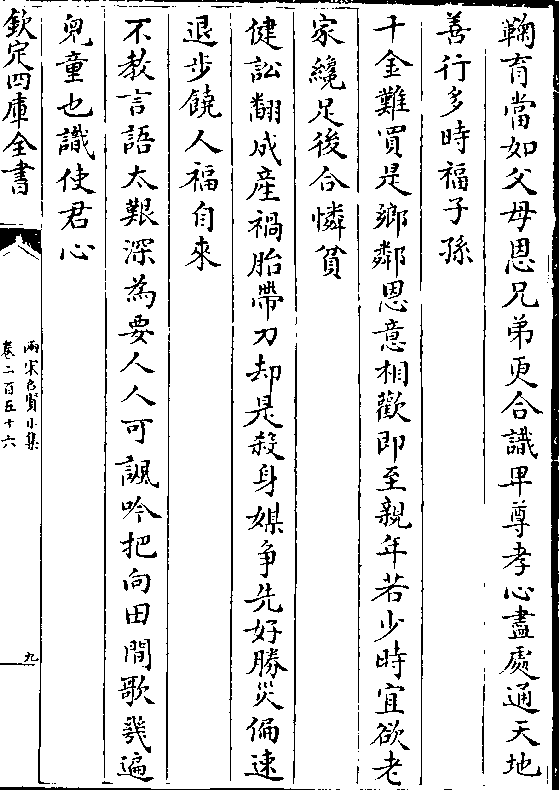 鞠育當如父母恩兄弟更合識卑尊孝心盡處通天地
善行多時福子孫
千金難買是鄉鄰恩意相歡即至親年若少時宜欲老
家纔足後合憐貧
健訟翻成產禍胎帶刀却是殺身媒爭先好勝災偏速
退步饒人福自來
不教言語太艱深為要人人可諷吟把向田間歌幾遍
兒童也識使君心
欽定四庫全書
兩宋名賢小集
卷二百五十六
九